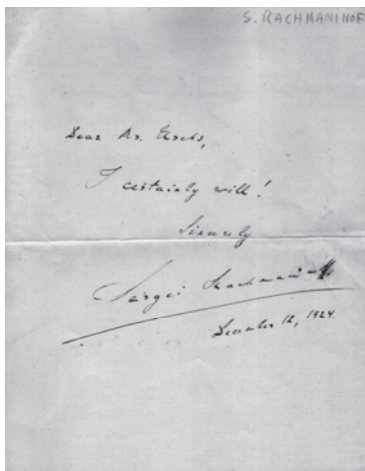 S. RACHMANINOF
Dear Mr.
I certainly will!
Sincerely
Sergei Rachmaninoff
December 12, 1924.